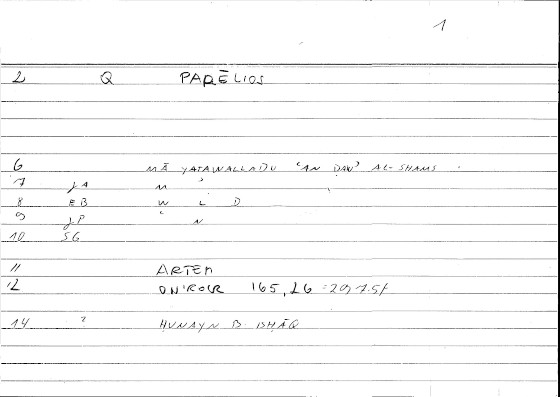 1
2 Q PARĒLIOS
6 MĀ YATAWALLADU ʿAN ḌAWʾ AL-SHAMS
7 JA M ʾ
8 EB W L D
9 JP ʿ N
10 SG
11 ARTEM
12 ONIROCR 165,26 = 297.5f
14 ? ḤUNAYN B. ISḤĀQ